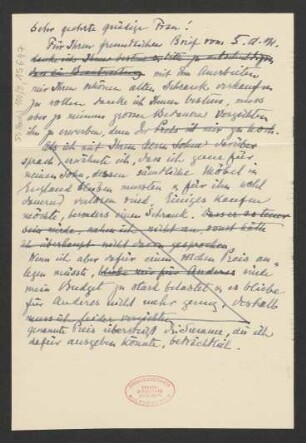 Sehr geehrte gnädige Frau!
Für Ihren freundlichen Brief vom 5. d. M.
danke ich Ihnen bestens
mit dem Anerbieten
mir Ihren schönen alten Schrank verkaufen
zu wollen danke ich Ihnen bestens, muss
aber zu meinem grossen Bedauern verzichten
ihn zu erwerben, denn der Preis ist mir zu hoch.
Als ich mit Ihrem Herrn Sohne darüber
sprach, erwähnte ich, dass ich gerne für
meinen Sohn, dessen sämtliche Möbel in
England bleiben mussten u. für ihn wohl
dauernd verloren sind, Einiges kaufen
möchte, besonders einen Schrank. Dass er so teuer
sein würde, nahm ich nicht an, sonst hätte
ich überhaupt nicht davon gesprochen.
Wenn ich aber dafür einen solchen Preis an-
legen müsste, bliebe mir für Anderes würde
mein Budget zu stark belastet u. es bliebe
für Anderes nicht mehr genug, deshalb
muss ich leider verzichten
genannte Preis übersteigt die Summe, die ich
dafür ausgeben könnte, beträchtlich.